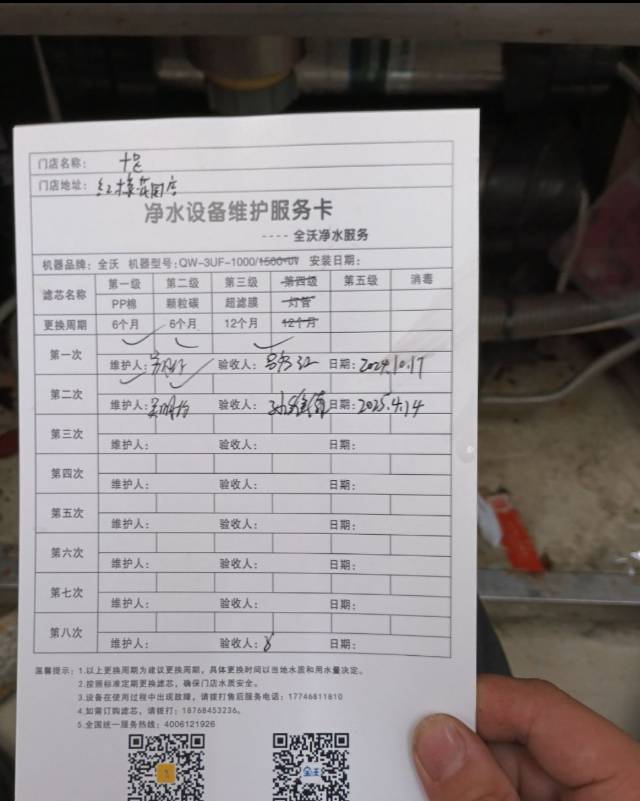 门店名称：
门店地址：红梅花园店
净水设备维护服务卡
---- 全沃净水服务
机器品牌：全沃 机器型号：QW-3UF-1000/1500+UV 安装日期：
滤芯名称 第一级 第二级 第三级 第四级 第五级 消毒
PP棉 颗粒碳 超滤膜 灯管
更换周期 6个月 6个月 12个月 12个月
第一次
维护人： 验收人： 日期：2024.10.17
第二次
维护人： 验收人： 日期：2025.4.14
第三次
维护人： 验收人： 日期：
第四次
维护人： 验收人： 日期：
第五次
维护人： 验收人： 日期：
第六次
维护人： 验收人： 日期：
第七次
维护人： 验收人： 日期：
第八次
维护人： 验收人： 日期：
温馨提示：1.以上更换周期为建议更换周期，具体更换时间以当地水质和用水量决定。
2.按照标准定期更换滤芯，确保门店水质安全。
3.设备在使用过程中出现故障，请拨打售后服务电话：17746811810
4.如需订购滤芯，请拨打：18768453236。
5.全国统一服务热线：4006121926